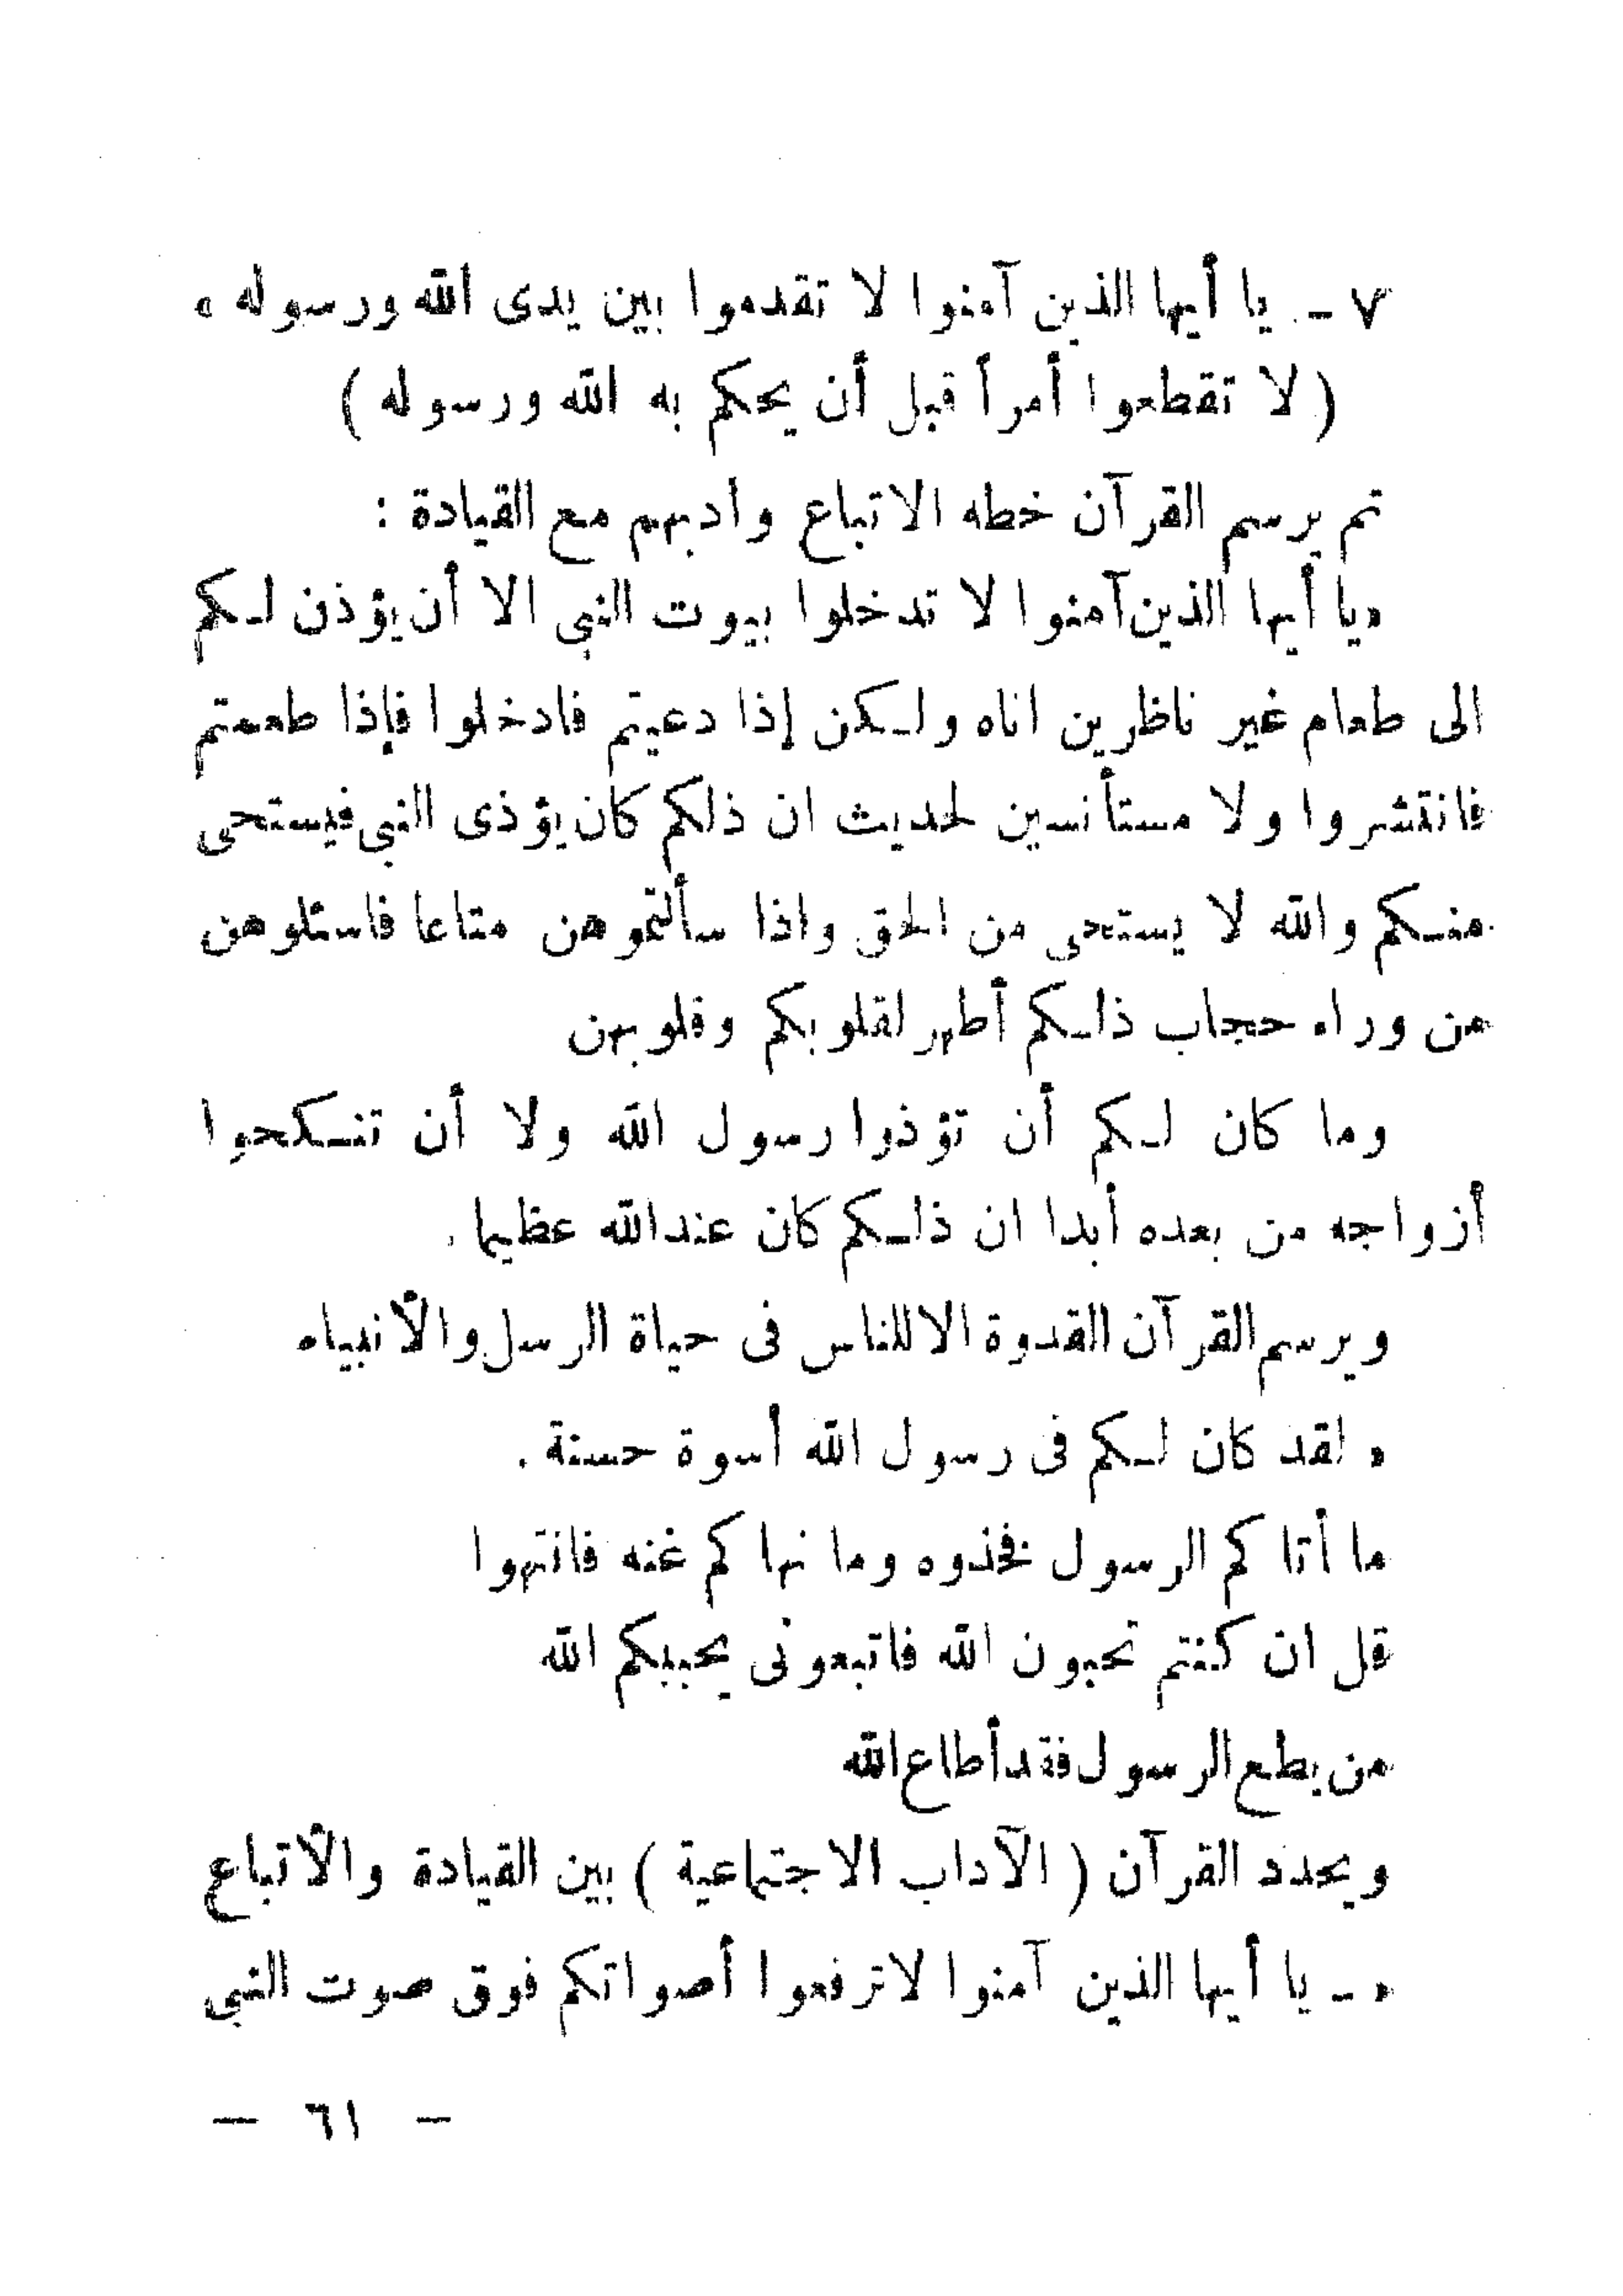 ٧ - يا أيها الذين آمنوا لا تقدموا بين يدى الله ورسوله »
( لا تقطعوا أمرأ قبل أن يحكم به الله ورسوله )
ثم يرسم القرآن خطه الاتباع وأدبهم مع القيادة :
« يا أيها الذين آمنوا لا تدخلوا بيوت النبى الا أن يؤذن لكم
الى طعام غير ناظرين اناه ولكن إذا دعيتم فادخلوا فإذا طعمتم
فانتشروا ولا مستأنسين لحديث ان ذلكم كان يؤذى النبى فيستحى
منكم والله لا يستحى من الحق واذا سألتموهن متاعا فاسئلوهن
من وراء حجاب ذلكم أطهر لقلوبكم وقلوبهن
وما كان لكم أن تؤذوا رسول الله ولا أن تنكحوا
أزواجه من بعده أبدا ان ذلكم كان عند الله عظيما .
ويرسم القرآن القدوة الا للناس فى حياة الرسل والأنبياء
« لقد كان لكم فى رسول الله أسوة حسنة .
ما أتاكم الرسول فخذوه وما نهاكم غنه فانتهوا
قل ان كنتم تحبون الله فاتبعونى يحببكم الله
من يطع الرسول فقد أطاع الله
ويحدد القرآن ( الآداب الاجتماعية ) بين القيادة والأتباع
« - يا أيها الذين آمنوا لا ترفعوا أصواتكم فوق صوت النبى
— ٦١ —